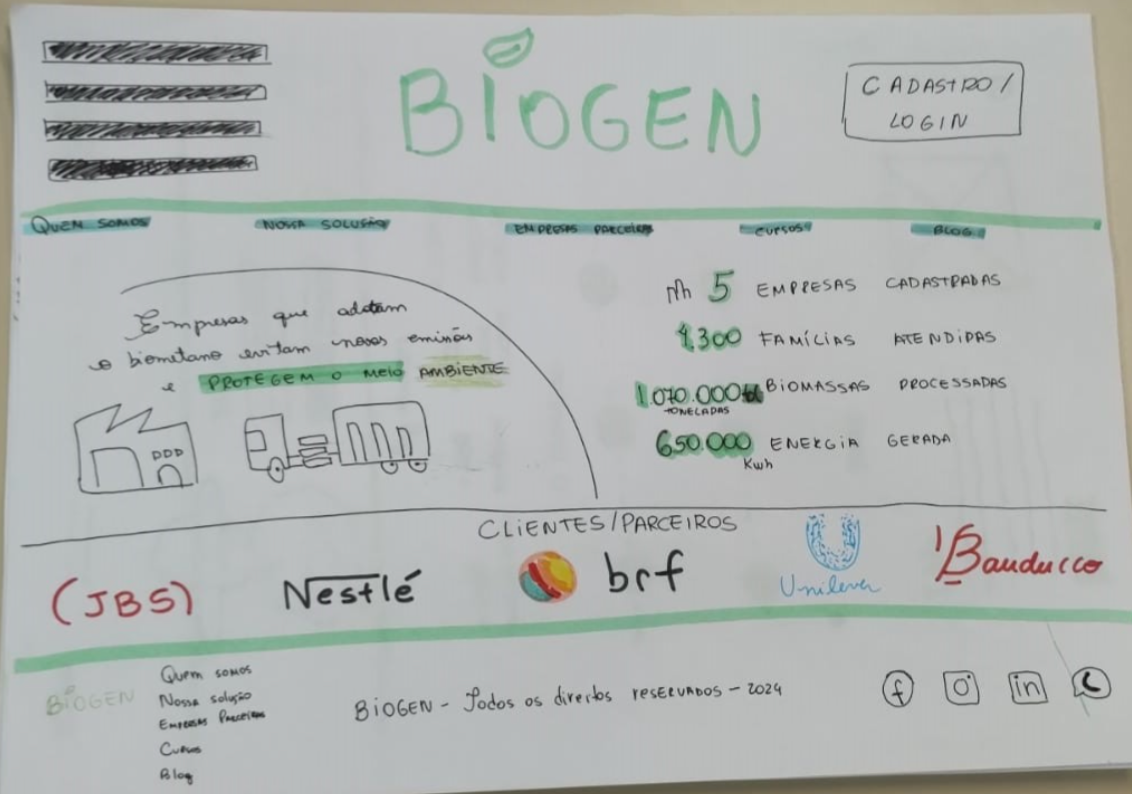 BIOGEN
CADASTRO/
LOGIN
QUEM SOMOS
NOSSA SOLUÇÃO
EMPRESAS PARCEIRAS
CURSOS
BLOG
Empresas que adotam
o biometano evitam novas emissões
e PROTEGEM O MEIO AMBIENTE
5 EMPRESAS CADASTRADAS
1.300 FAMÍLIAS ATENDIDAS
1.070.000 BIOMASSAS PROCESSADAS
TONELADAS
650.000 ENERGIA GERADA
Kwh
CLIENTES/PARCEIROS
(JBS)
Nestlé
brf
Unilever
Bauducco
BIOGEN
Quem somos
Nossa solução
Empresas Parceiras
Cursos
Blog
BIOGEN - Todos os direitos reservados - 2024
f
in